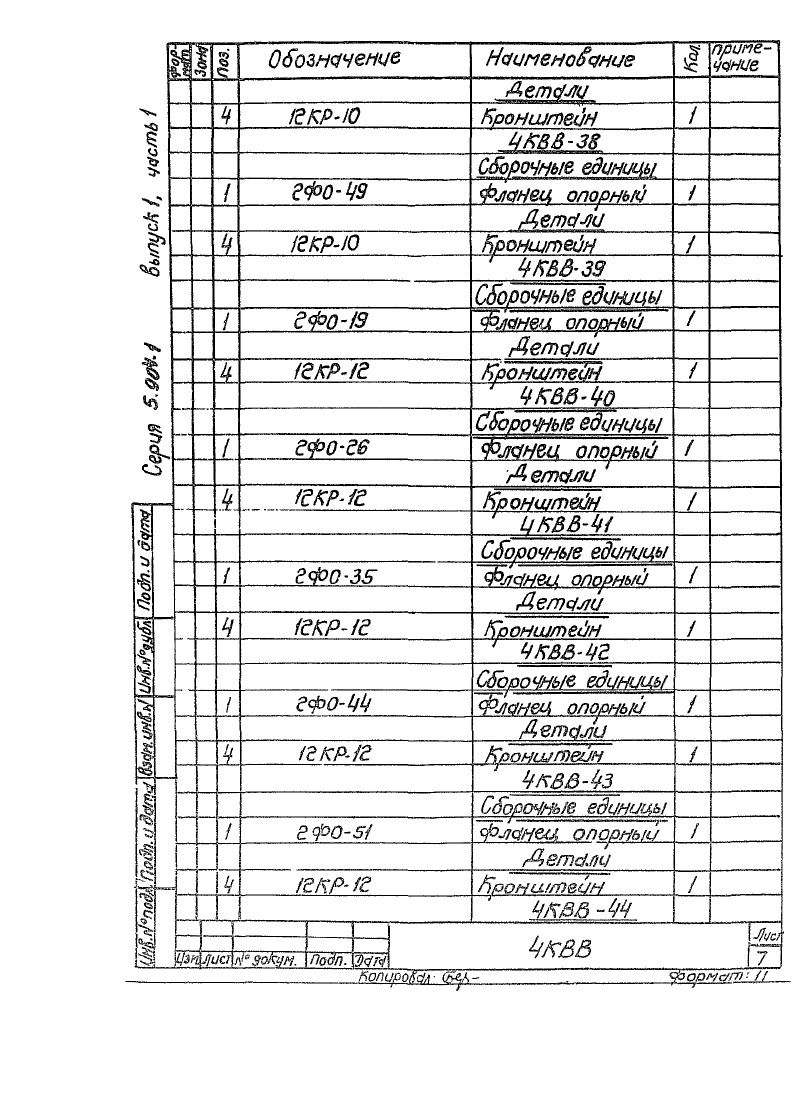 Фор-мат. Зона Поз. Обозначение Наименование Кол. Приме-чание
Детали
4 12КР-10 Кронштейн 1
4КВВ-38
Сборочные единицы
1 2ФО-49 Фланец опорный 1
Детали
4 12КР-10 Кронштейн 1
4КВВ-39
Сборочные единицы
1 2ФО-19 Фланец опорный 1
Детали
4 12КР-12 Кронштейн 1
4КВВ-40
Сборочные единицы
1 2ФО-26 Фланец опорный 1
Детали
4 12КР-12 Кронштейн 1
4КВВ-41
Сборочные единицы
1 2ФО-35 Фланец опорный 1
Детали
4 12КР-12 Кронштейн 1
4КВВ-42
Сборочные единицы
1 2ФО-44 Фланец опорный 1
Детали
4 12КР-12 Кронштейн 1
4КВВ-43
Сборочные единицы
1 2ФО-51 Фланец опорный 1
Детали
4 12КР-12 Кронштейн 1
4КВВ-44
Серия 5.904.1 Выпуск 1, часть 1
Инв.№подл. Подп. и дата Взам.инв.№ Инв.№дубл. Подп. и дата
4КВВ
Лист
7
Изм Лист № докум. Подп. Дата
Копировал:
Формат: 11